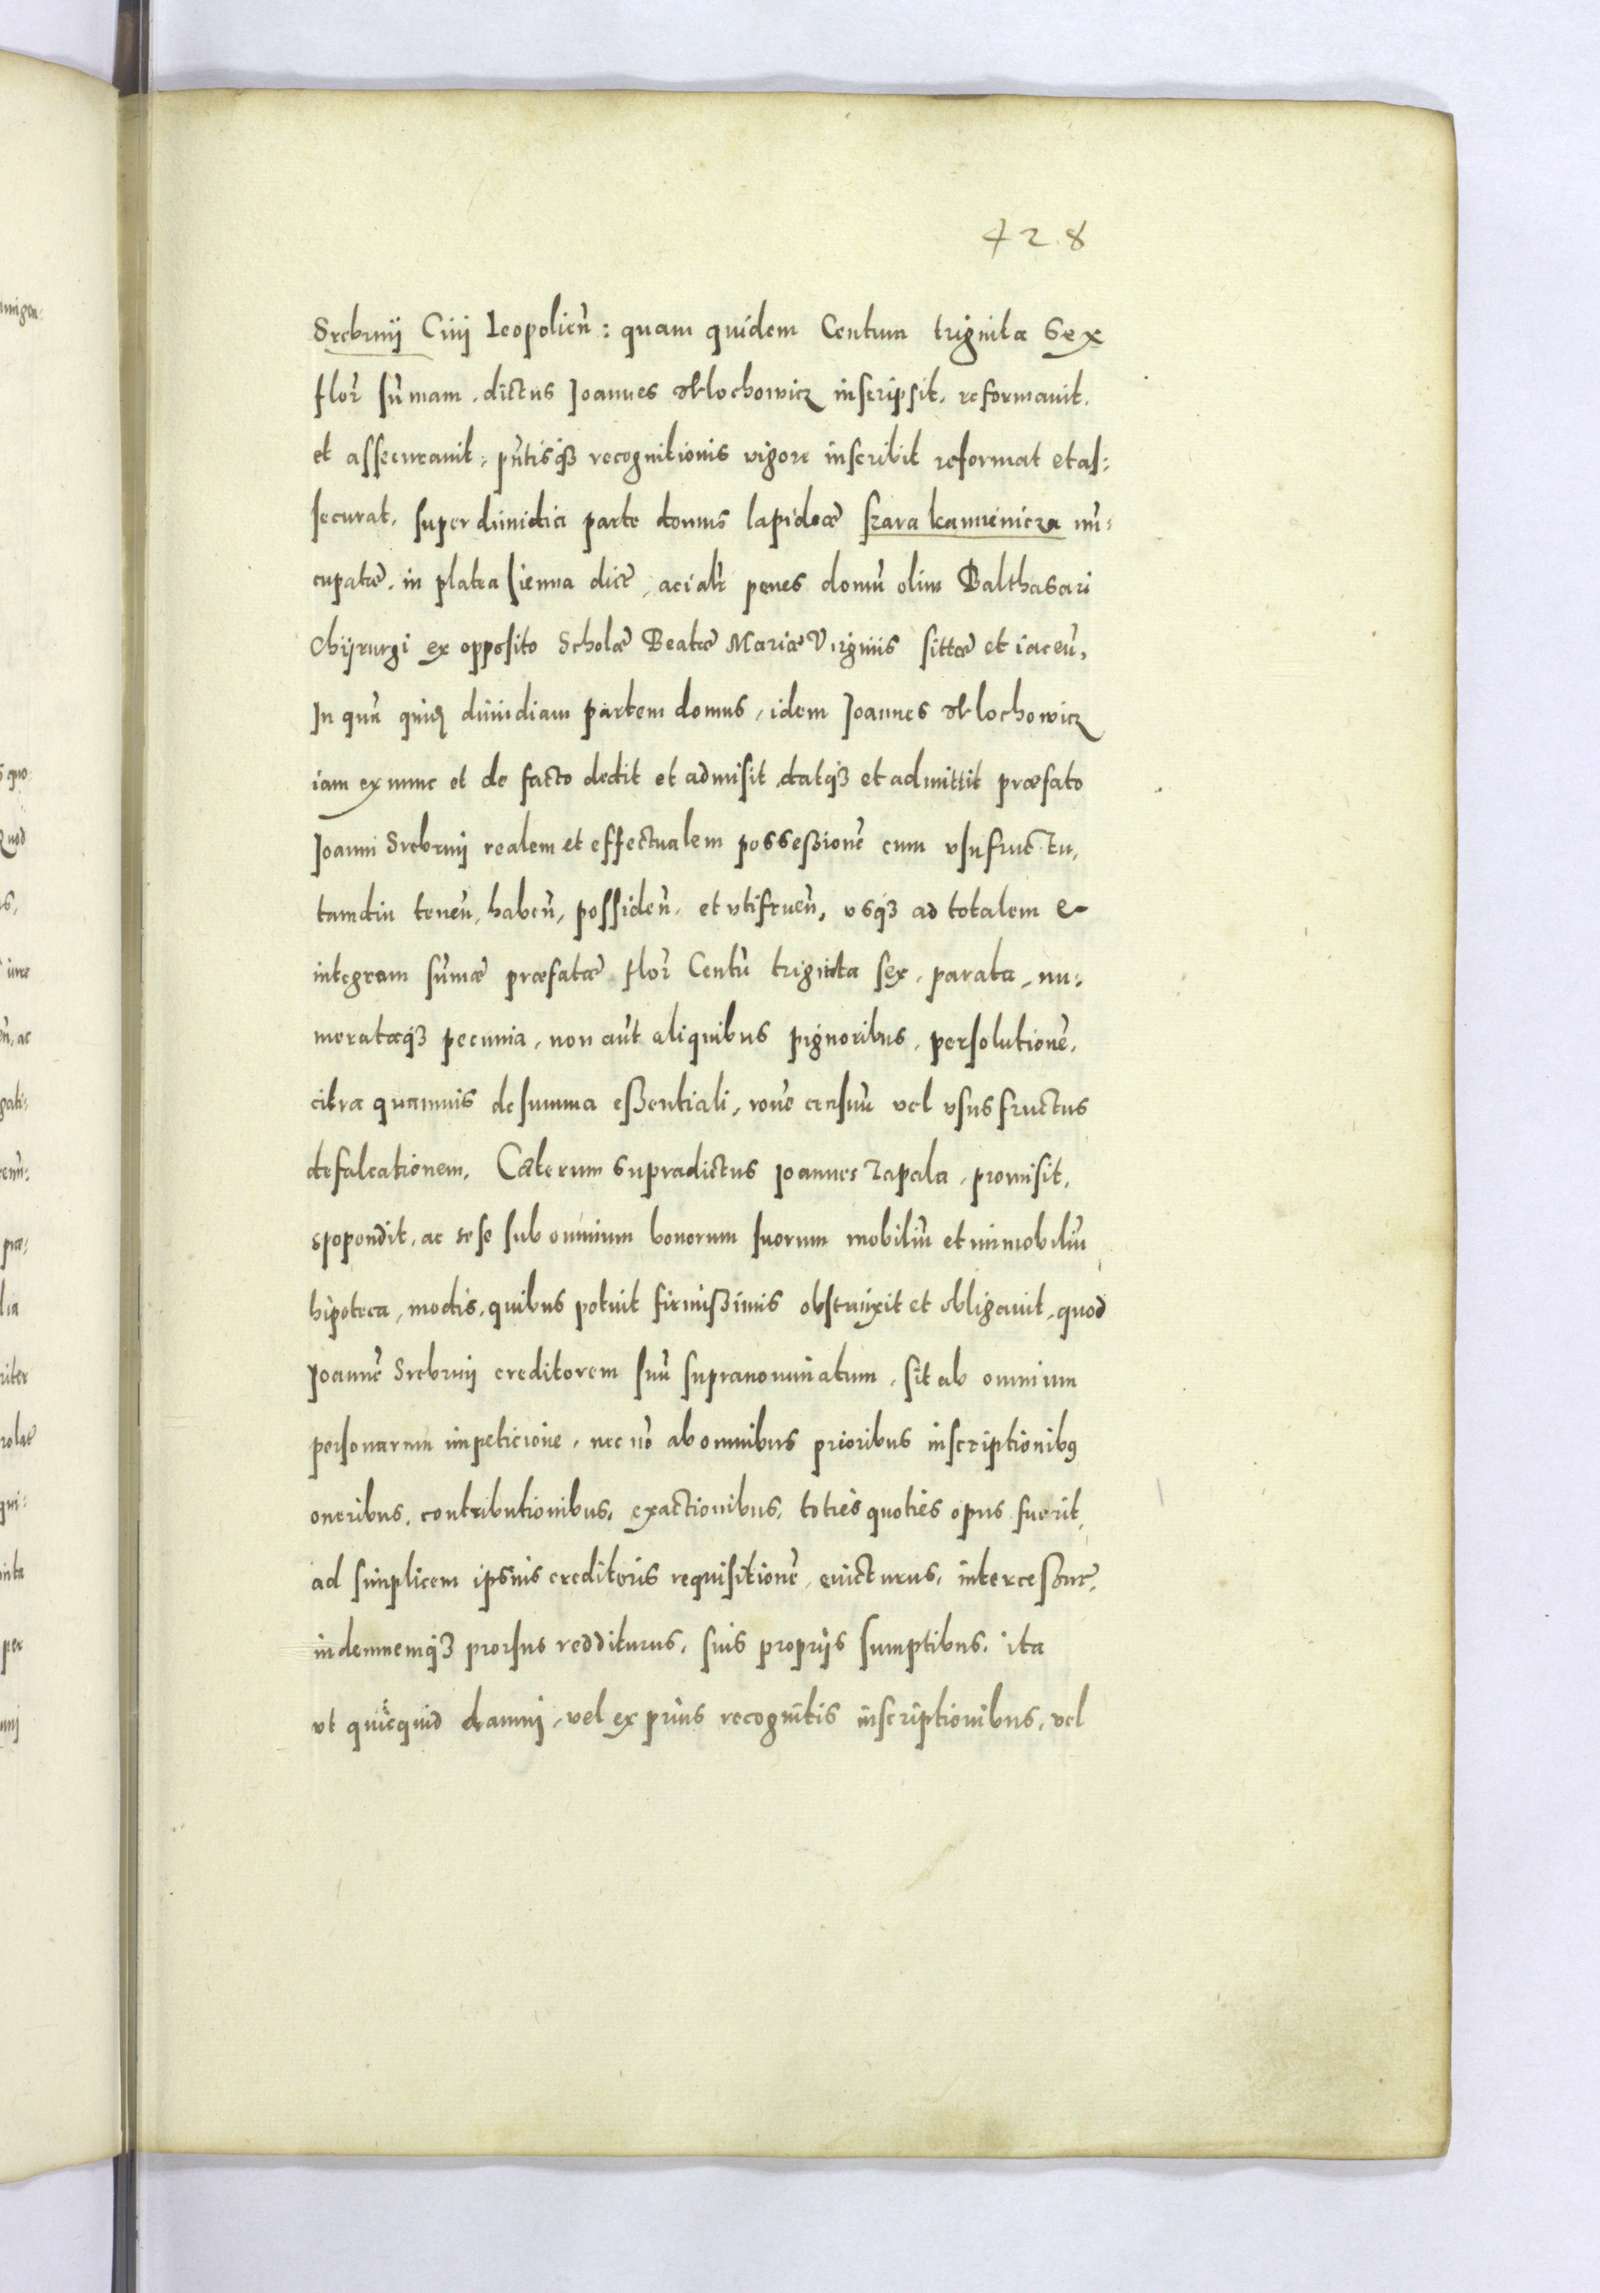 428
Srebrnij Ciuj Leopolien̄: quam quidem Centum triginta Sex
flor̄ sūmam. dictus Joannes Wlochowicz inscripsit. reformauit.
et assecurauit, pn̄tisqȝ recognitionis vigore inscribit reformat et as:
securat. super dimidia parte domus lapideæ szara kamienicza nū:
cupatæ. in platea sienna dictæ, aciali penes domū olim Balthasari
Chijrurgi ex opposito Scholæ Beatæ Mariæ Virginis sittæ et iacen̄,
In quā dimidiam partem domus, idem Joannes Wlochowicz
iam ex nunc et de facto dedit et admisit, datqȝ et admittit præfato
Joanni Srebrnij realem et effectualem possessionē cum vsufructu,
tamdiu tenen̄, haben̄, possiden̄. et vtifruen̄, vsqȝ ad totalem &
integram sūmæ præfatæ flor̄ Centū triginta sex, parata, nu:
merataqȝ pecunia, non aūt aliquibus pignoribus, persolutionē.
citra quamuis de summa essentiali, rōne censuū vel vsusfructus
defalcationem. Cæterum supradictus Joannes Zapala, promisit.
spopondit. ac sese sub omnium bonorum suorum mobiliū et immobiliū
hipoteca, modis, quibus potuit firmissimis obstrinxit et obligauit, quod
Joannē Srebrnij creditorem suū supranominatum, sit ab omnium
personarum impeticione, nec nō ab omnibus prioribus inscriptionibꝰ
oneribus, contributionibus, exactionibus, toties quoties opus fuerit,
ad simplicem ipsius creditoris requisitionē, euicturus, intercessur̄,
indemnemqȝ prorsus redditurus, suis proprijs sumptibus, ita
vt quicquid damnj, vel ex prius recognitis inscriptionibus, vel